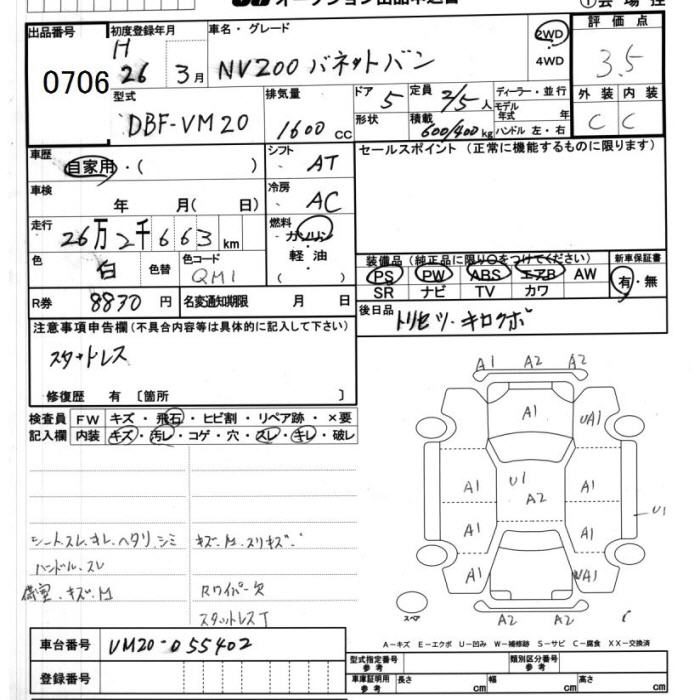 オークション出品申込書
①会場控
出品番号
0706
初度登録年月
H 26 3月
車名・グレード
NV200 バネットバン
2WD
4WD
評価点
3.5
外装 内装
C C
型式
DBF-VM20
排気量
1600 CC
ドア 5
形状
定員 2/5人
積載 600/400 kg
ディーラー・並行
モデル年式 年
ハンドル 左・右
車歴
自家用・( )
車検
年 月( 日)
シフト AT
冷房 AC
セールスポイント(正常に機能するものに限ります)
走行
26万2千663km
燃料
ガソリン
軽油
色 白 色替
色コード QM1
装備品(純正品に限り○をつけてください)
PS PW ABS エアB AW
SR ナビ TV カワ
新車保証書
有・無
R券 8830円
名変通知期限 月 日
後日品 トリセツ・キロクボ
注意事項申告欄(不具合内容等は具体的に記入して下さい)
スタットレス
修復歴 有 〔箇所 〕
検査員記入欄
FW キズ・飛石・ヒビ割・リペア跡・×要
内装 キズ・汚レ・コゲ・穴・スレ・キレ・破レ
シートスレ.キレ.ヘタリ.シミ
ハンドル.スレ
荷室.キズ.凹
キズ.凹.スリキズ
Rワイパー欠
スタットレスT
A1 A2 A2
A1
UA1
A1 U1 A2 A1
U1
A1 A1
A1 UA1
スペア
A2 A2
A-キズ E-エクボ U-凹み W-補修跡 S-サビ C-腐食 XX-交換済
車台番号 VM20-055402
登録番号
型式指定番号 参考
類別区分番号 参考
車庫証明用 参考
長さ cm 幅 cm 高さ cm